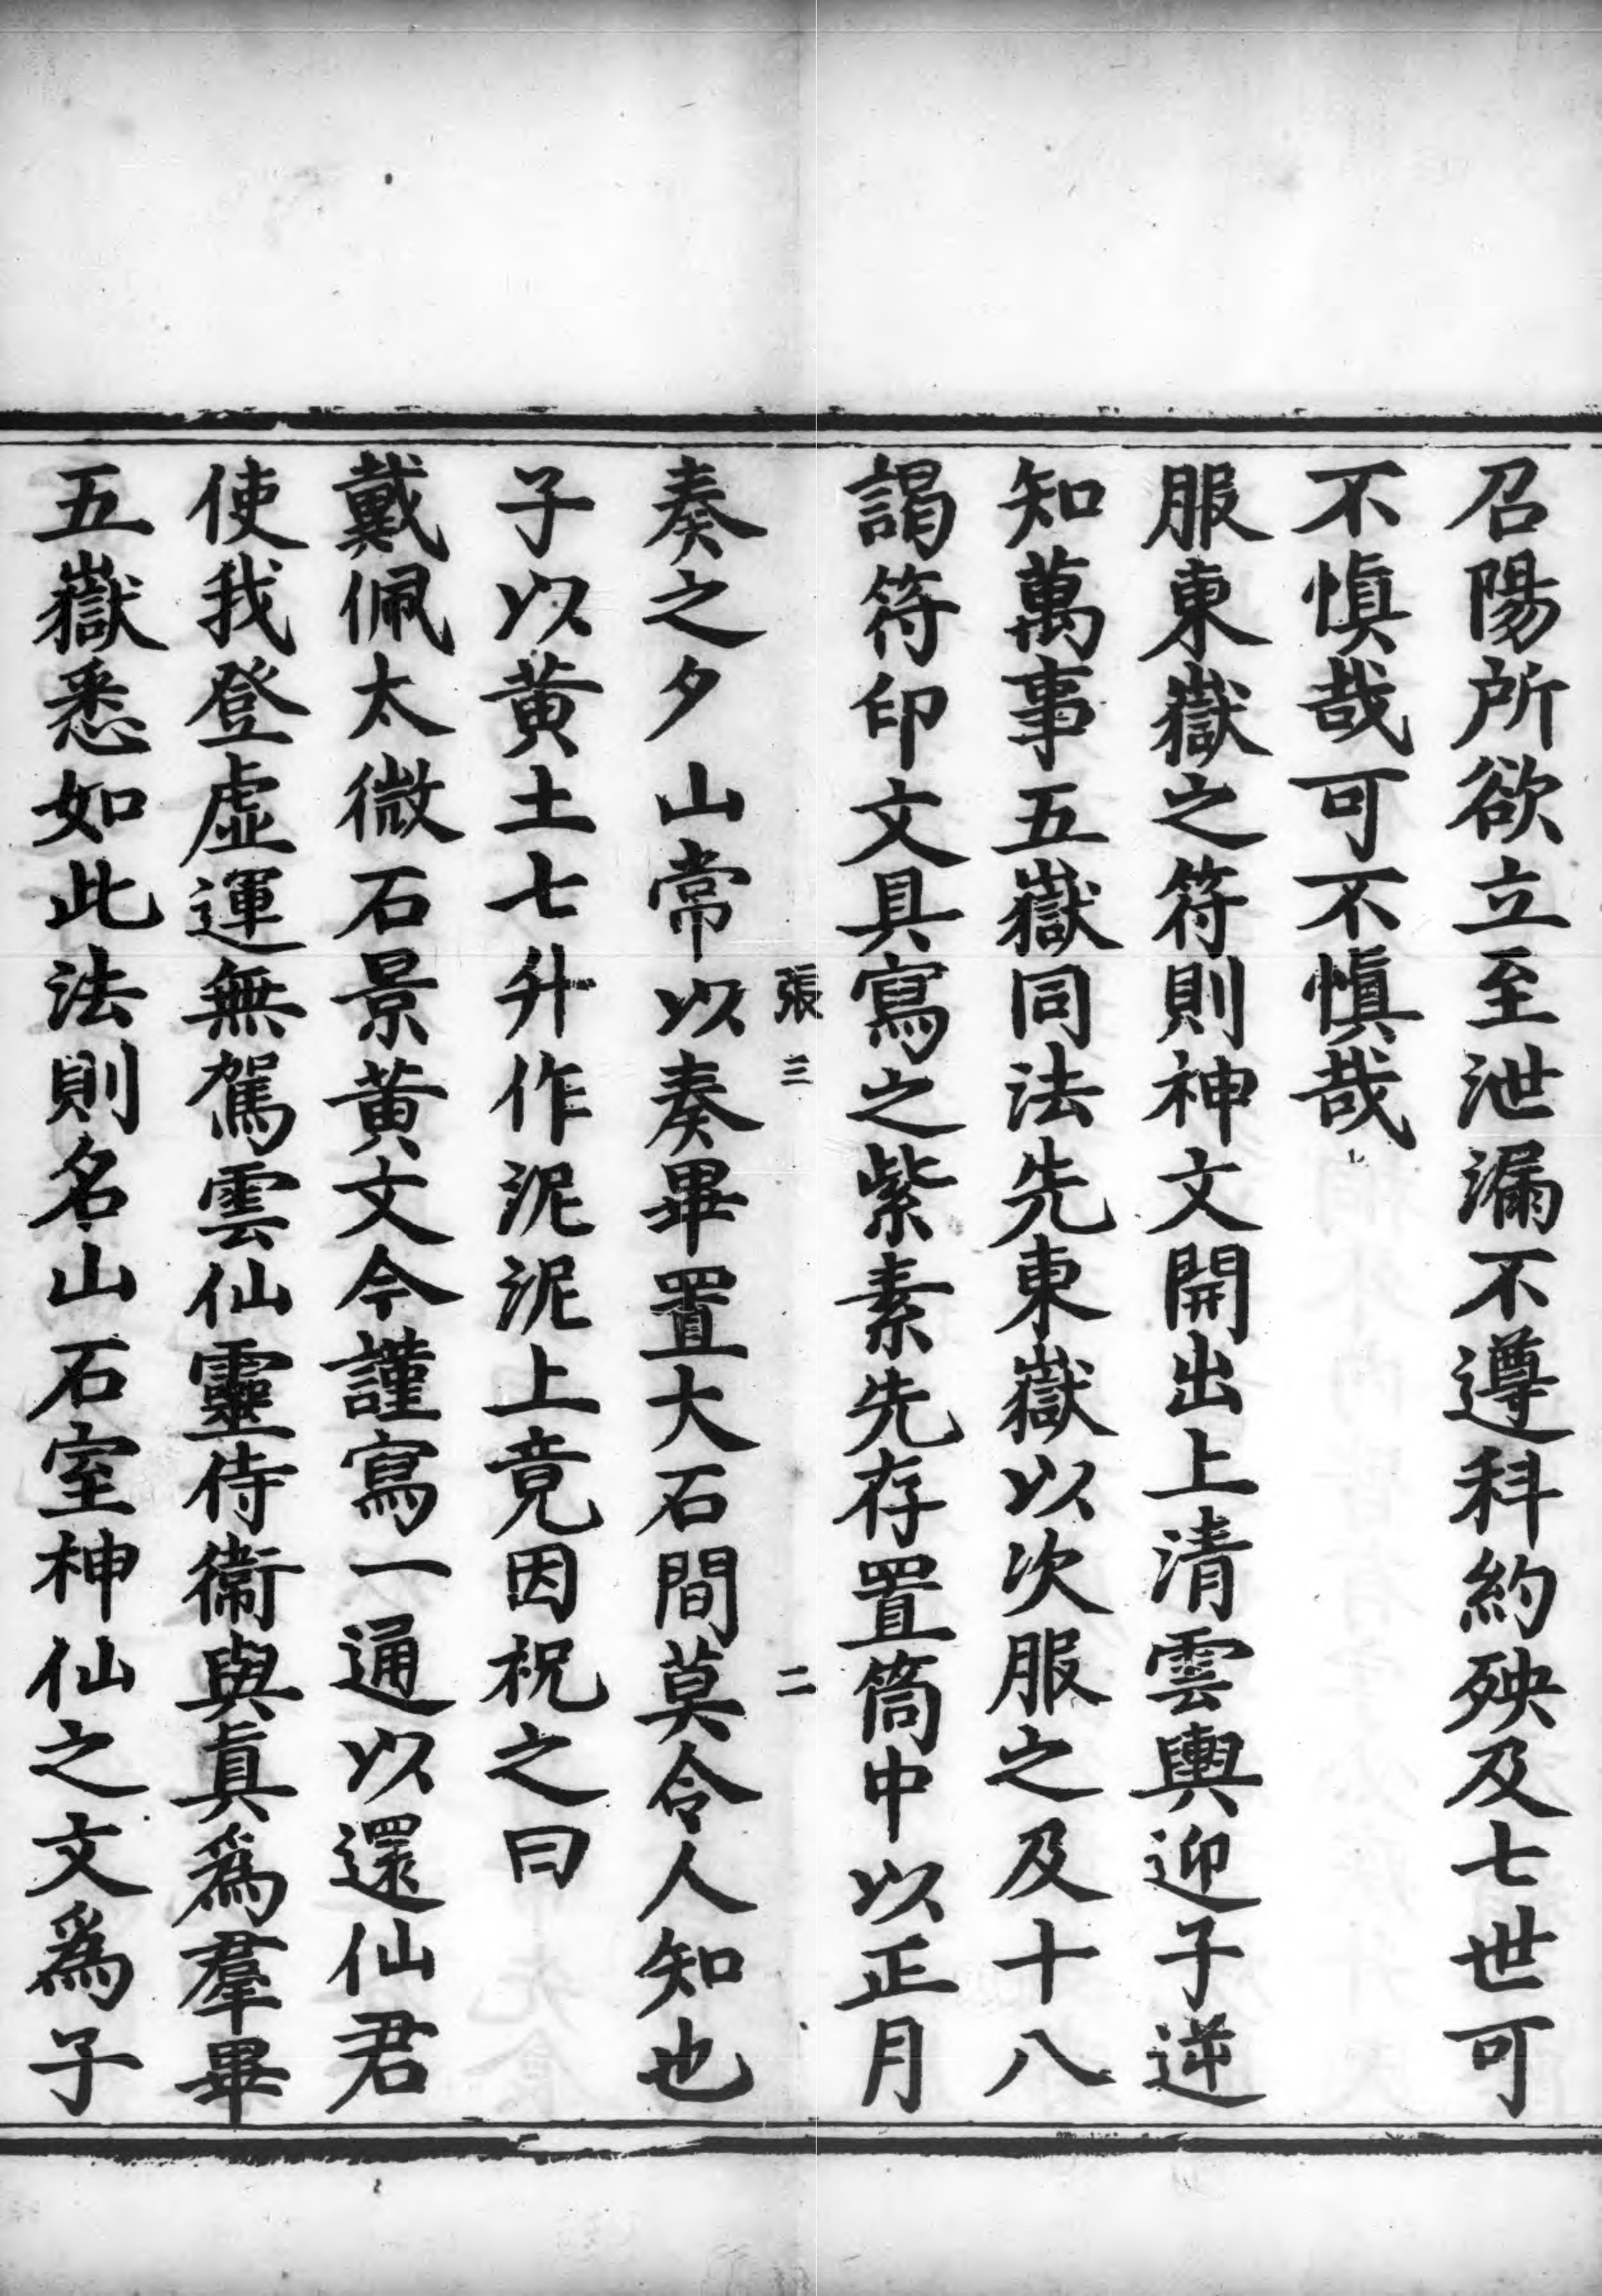 召陽所欲立至泄漏不遵科約殃及七世可
不慎哉可不慎哉
服東嶽之符則神文開出上清雲輿迎子逆
知萬事五嶽同法先東嶽以次服之及十八
謁符印文具寫之紫素先存置筒中以正月
張三 二
奏之夕山常以奏畢置大石間莫令人知也
子以黃土七升作泥泥上竟因祝之曰
戴佩太微石景黃文今謹寫一通以還仙君
使我登虛運無駕雲仙靈侍衛與眞爲羣畢
五嶽悉如此法則名山石室神仙之文爲子